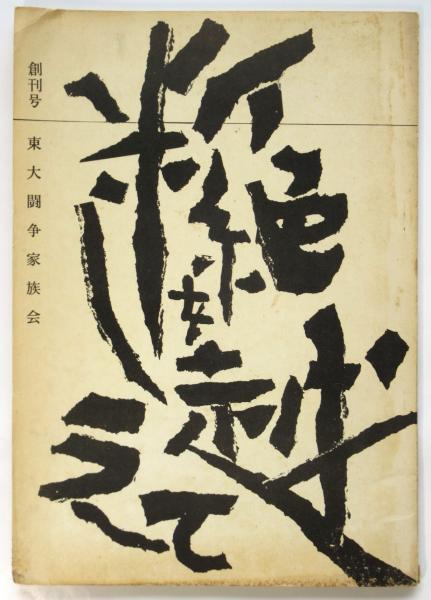 断絶を越えて
創刊号
東大闘争家族会